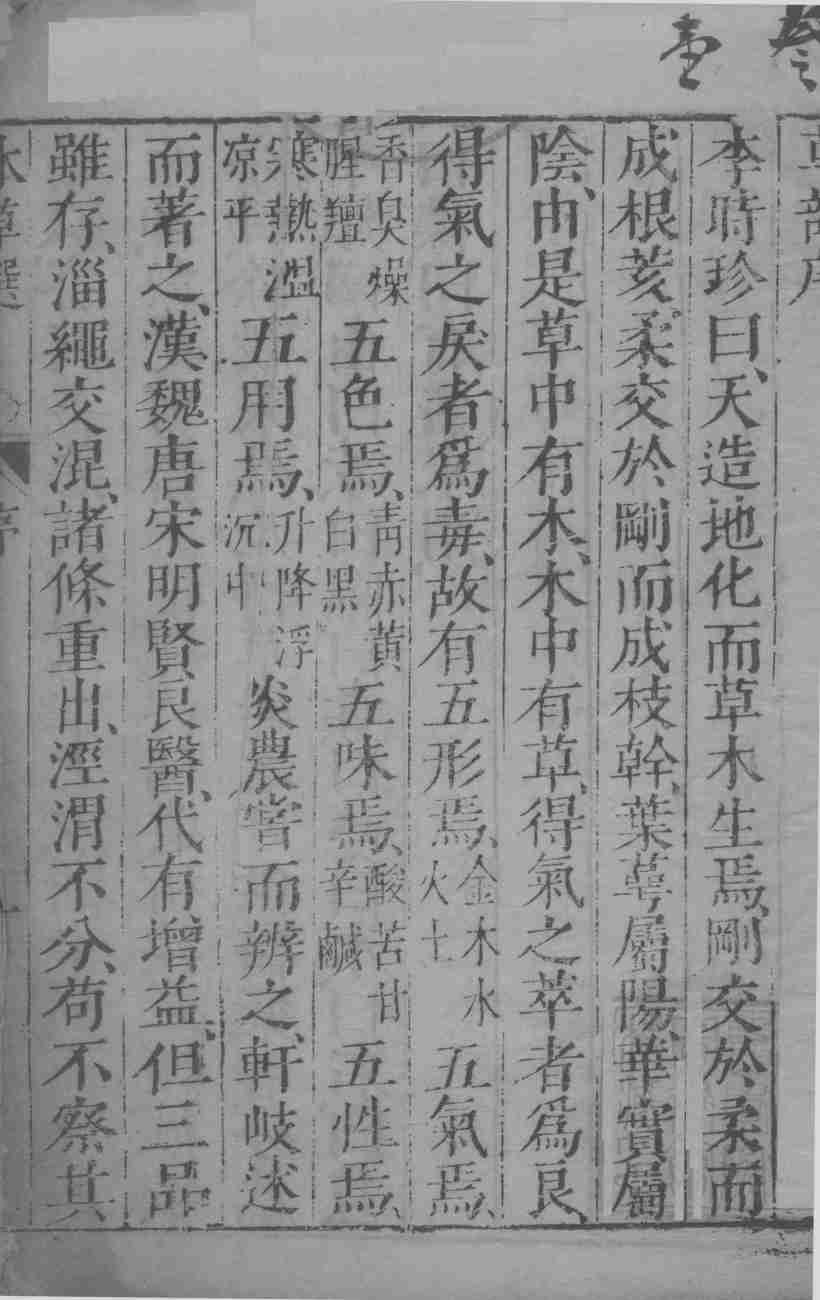 草部序
李時珍曰、天造地化而草木生焉、剛交於柔而
成根荄、柔交於剛而成枝幹、葉萼屬陽、華實屬
陰、由是草中有木、木中有草、得氣之萃者爲良、
得氣之戾者爲毒、故有五形焉、金木水火土五氣焉、
香臭燥腥羶五色焉、靑赤黃白黑五味焉、酸苦甘辛鹹五性焉、
寒熱溫凉平五用焉、升降浮沉中炎農嘗而辨之、軒岐述
而著之、漢魏唐宋明賢良醫、代有增益、但三品
雖存、淄繩交混、諸條重出、涇渭不分、苟不察其
序